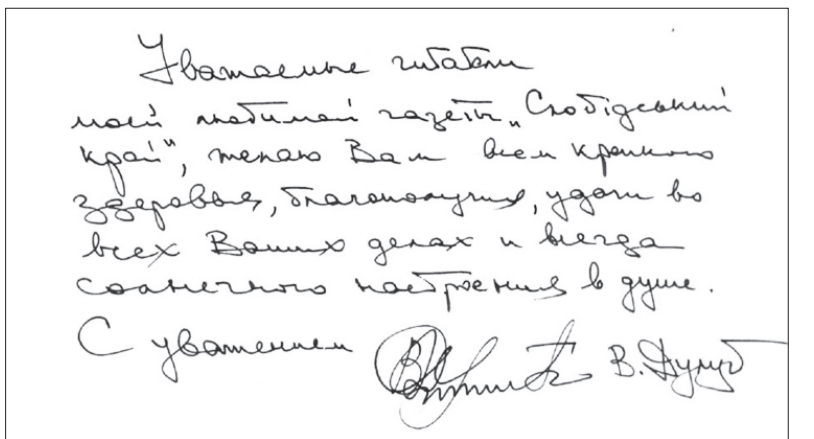 Уважаемые читатели
моей любимой газеты „Слобідський
край", желаю Вам всем крепкого
здоровья, благополучия, удачи во
всех Ваших делах и всегда
солнечного настроения в душе.
С уважением В.